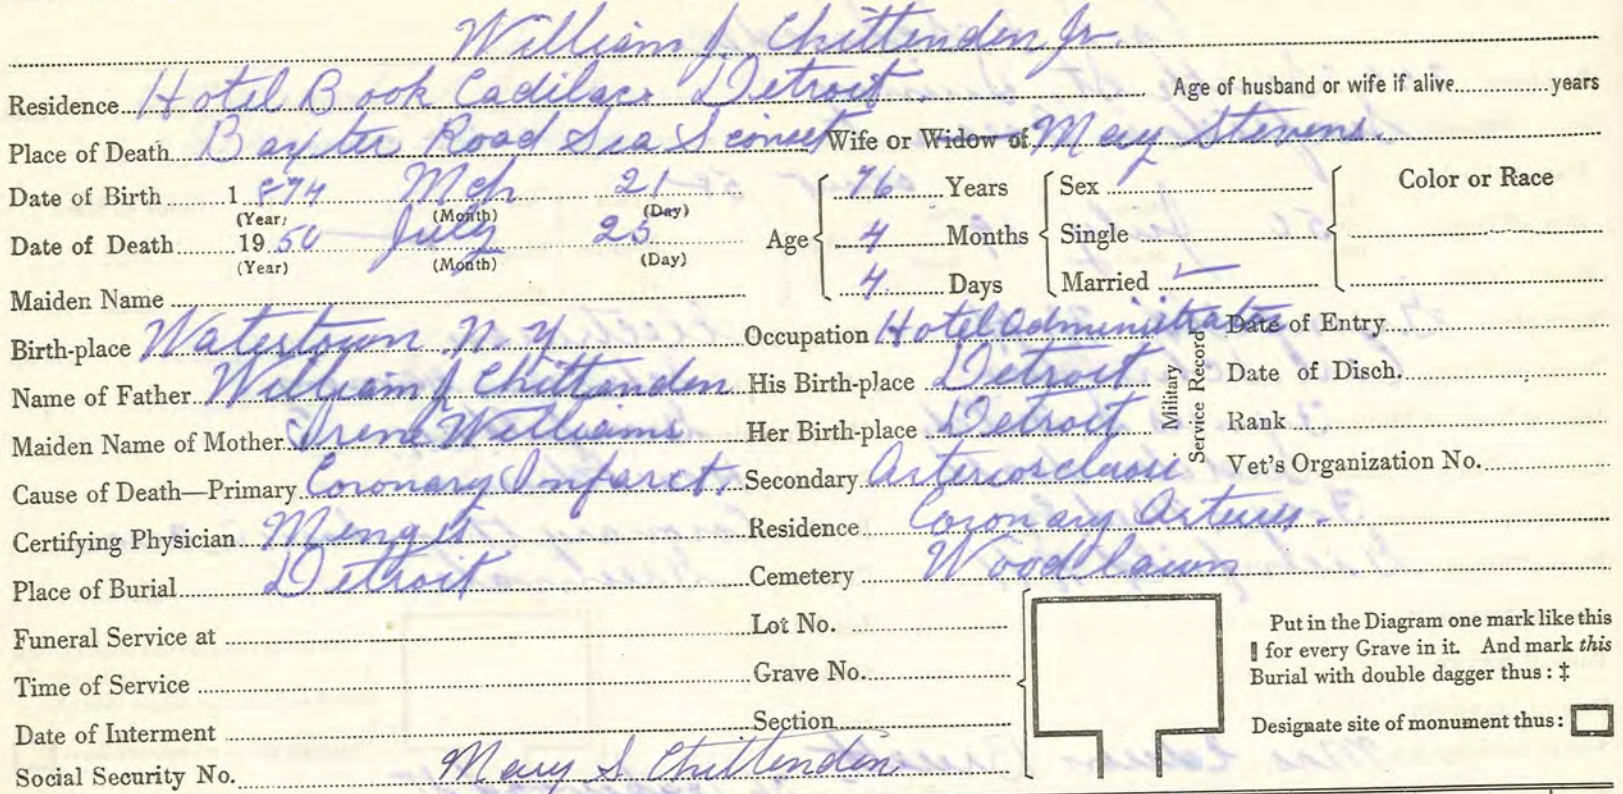 William J. Chittenden Jr.
Residence Hotel Book Cadilac Detroit Age of husband or wife if alive years
Place of Death Baxter Road Sia Sconset Wife or Widow of Mary Stevens.
Date of Birth 1 874 Mch 21
(Year) (Month) (Day)
Date of Death 19 50 July 25
(Year) (Month) (Day)
Age 76 Years
4 Months
4 Days
Sex
Single
Married ✓
Color or Race
Maiden Name
Birth-place Watertown N. Y Occupation Hotel administrator Date of Entry
Name of Father William J Chittenden His Birth-place Detroit Date of Disch.
Maiden Name of Mother Irene Williams Her Birth-place Detroit Rank
Military Service Record
Cause of Death—Primary Coronary Infarct. Secondary Vet's Organization No.
Certifying Physician Residence Coronary Arteries.
Place of Burial Detroit Cemetery Woodlawn
Funeral Service at Lot No.
Time of Service Grave No.
Date of Interment Section
Social Security No. Mary S Chittenden
Put in the Diagram one mark like this
for every Grave in it. And mark this
Burial with double dagger thus : ‡
Designate site of monument thus :